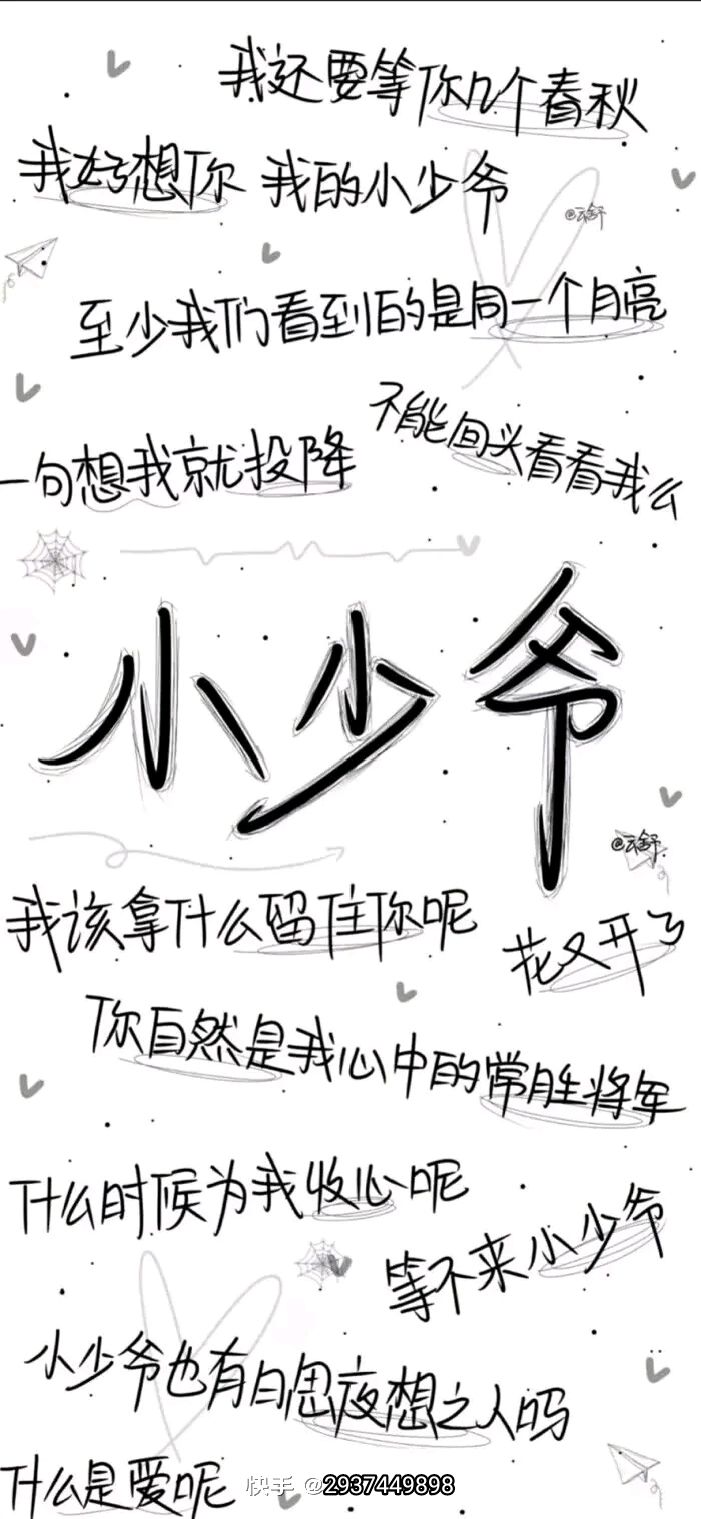 我还要等你几个春秋
我好想你 我的小少爷
@云舒
至少我们看到的是同一个月亮
不能回头看看我么
一句想我就投降
小少爷
@云舒
我该拿什么留住你呢
花又开了
你自然是我心中的常胜将军
什么时候为我收心呢
等不来小少爷
小少爷也有日思夜想之人吗
什么是爱呢
快手 @2937449898